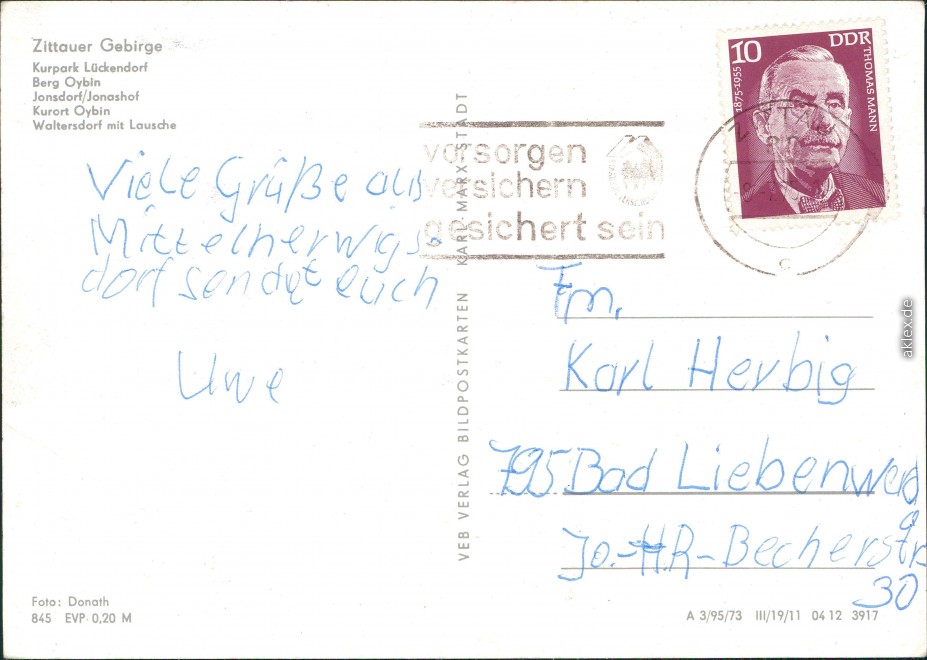 Zittauer Gebirge
Kurpark Lückendorf
Berg Oybin
Jonsdorf/Jonashof
Kurort Oybin
Waltersdorf mit Lausche
Viele Grüße aus
Mittelherwigs-
dorf sendet euch
Uwe
Foto: Donath
845 EVP 0,20 M
VEB VERLAG BILDPOSTKARTEN KARL-MARX-STADT
vorsorgen
versichern
gesichert sein
10 DDR
1875-1955
THOMAS MANN
Fm.
Karl Herbig
795 Bad Liebenwerd
a
Jo.-H.R-Becherstr.
30
A 3/95/73 III/19/11 04 12 3917
aklex.de